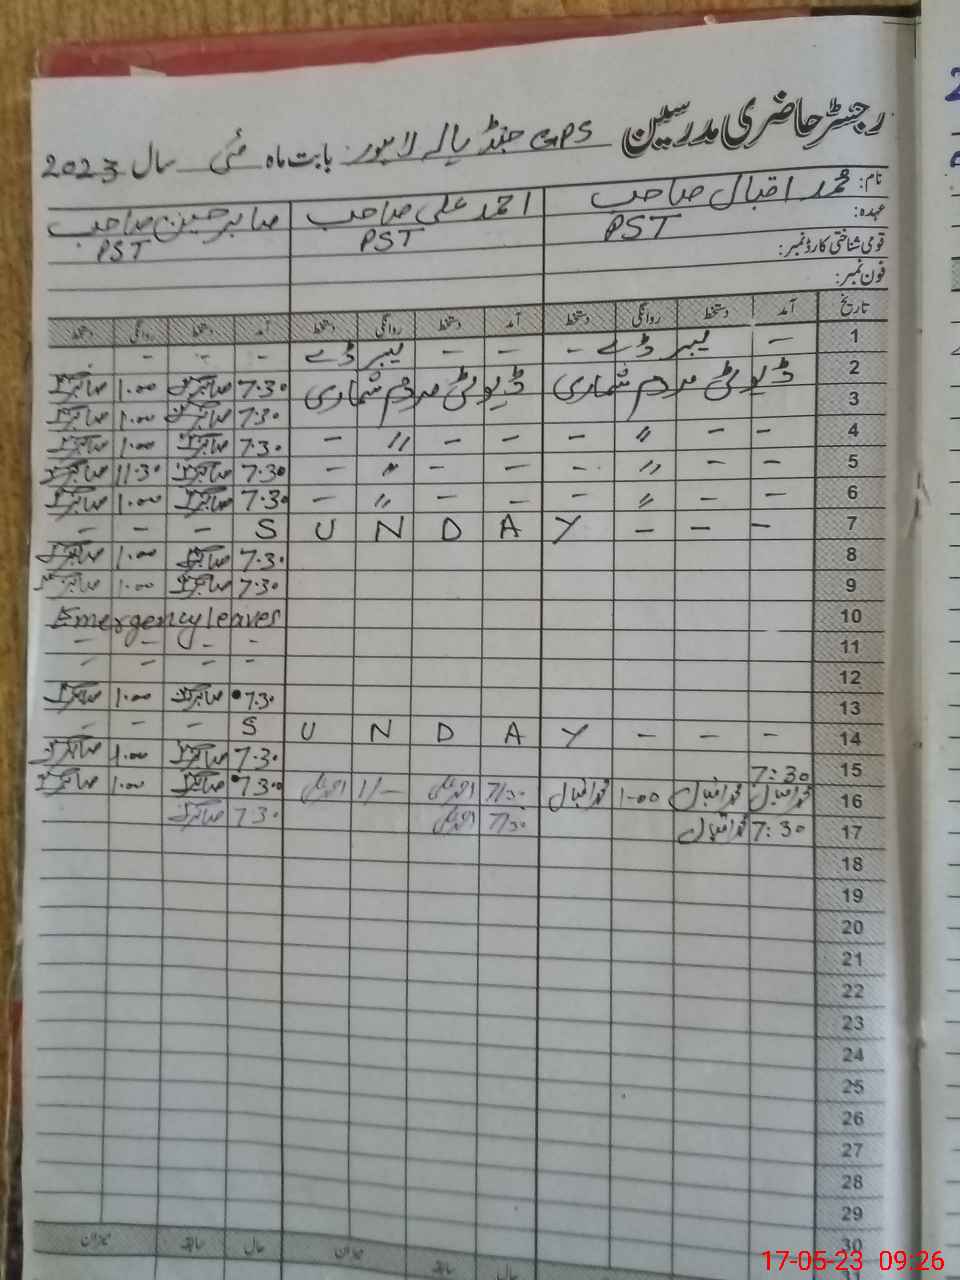 رجسٹر حاضری مدرسین GPS جنڈیالہ لاہور بابت ماہ مئی سال 2023
نام: محمد اقبال صاحب احمد علی صاحب صابر حسین صاحب
عہدہ: PST PST PST
قومی شناختی کارڈ نمبر:
فون نمبر:
تاریخ آمد دستخط روانگی دستخط آمد دستخط روانگی دستخط آمد دستخط روانگی دستخط
1 - لیبر ڈے - - - لیبر ڈے - - -
2 ڈیوٹی مردم شماری ڈیوٹی مردم شماری 7.30 1.00
3 7.30 1.00
4 - - 〃 - - - 〃 - 7.30 1.00
5 - - 〃 - - - 〃 - 7.30 11.30
6 - - 〃 - - - 〃 - 7.30 1.00
7 - - - Y A D N U S - - -
8 7.30 1.00
9 7.30 1.00
10 Emergency leaves
11 - - - -
12 - - - -
13 7.30 1.00
14 - - - Y A D N U S - - -
15 7:30 7.30 1.00
16 محمد اقبال محمد اقبال 1-00 محمد اقبال 7/30 احمد علی 1/- احمد علی 7.30 1.00
17 7:30 محمد اقبال 7/30 احمد علی 7.30
18
19
20
21
22
23
24
25
26
27
28
29
30
حال سابقہ میزان حال سابقہ میزان
17-05-23 09:26